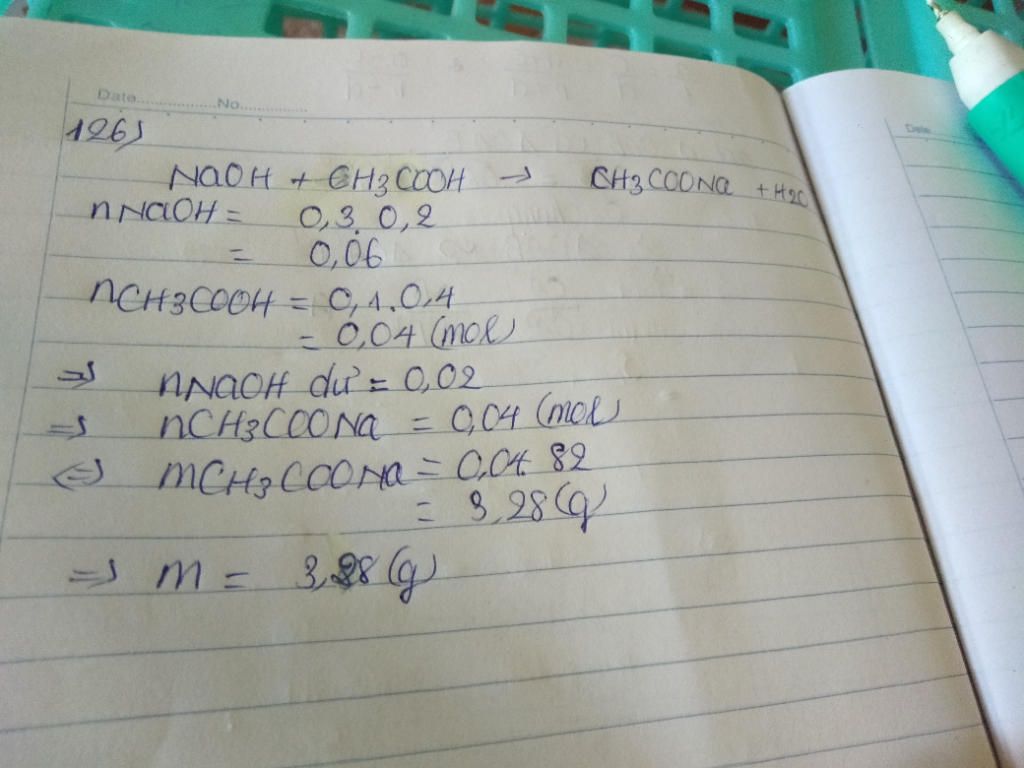 Date.....................No...............
126)
NaOH + CH3COOH → CH3COONa + H2O
nNaOH = 0,3.0,2
= 0,06
nCH3COOH = 0,1.0,4
= 0,04 (mol)
=> nNaOH dư = 0,02
=> nCH3COONa = 0,04 (mol)
<=> mCH3COONa = 0,04.82
= 3,28 (g)
=> m = 3,28 (g)
Date